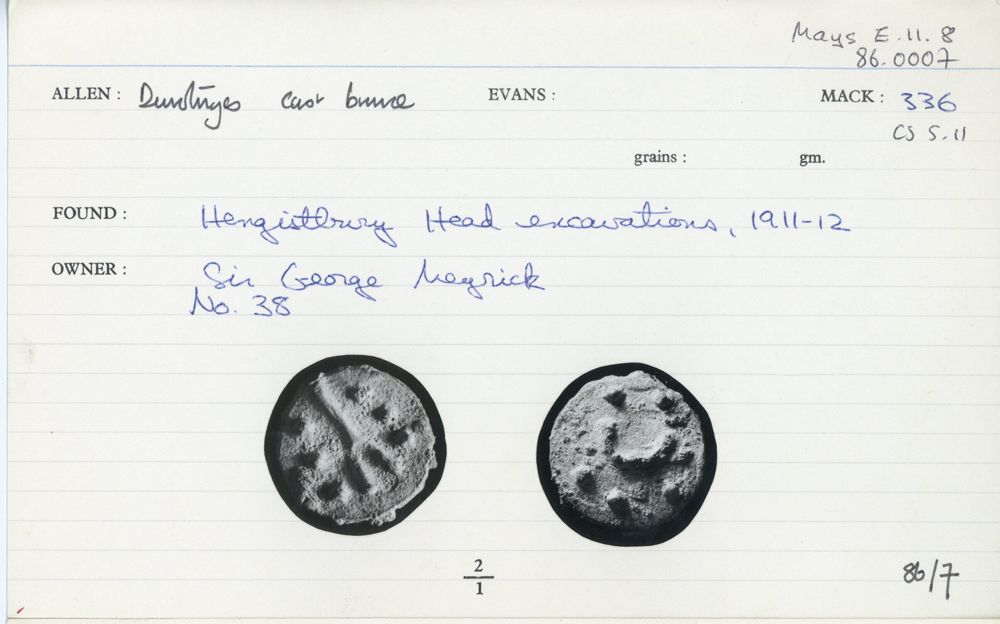 Mays E.11.8
86.0007
ALLEN: Durotriges cast bronze EVANS: MACK: 336
CS S.11
grains: gm.
FOUND: Hengistbury Head excavations, 1911-12
OWNER: Sir George Meyrick
No. 38
2
1
86/7